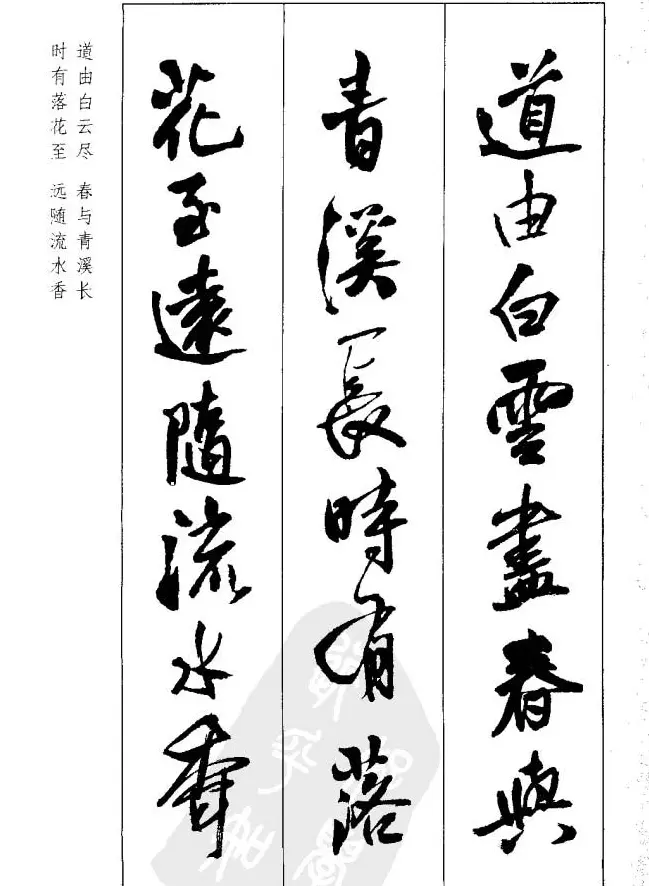 道由白雲盡春與
青溪長時有落
花至遠隨流水香
道由白云尽 春与青溪长
时有落花至 远随流水香